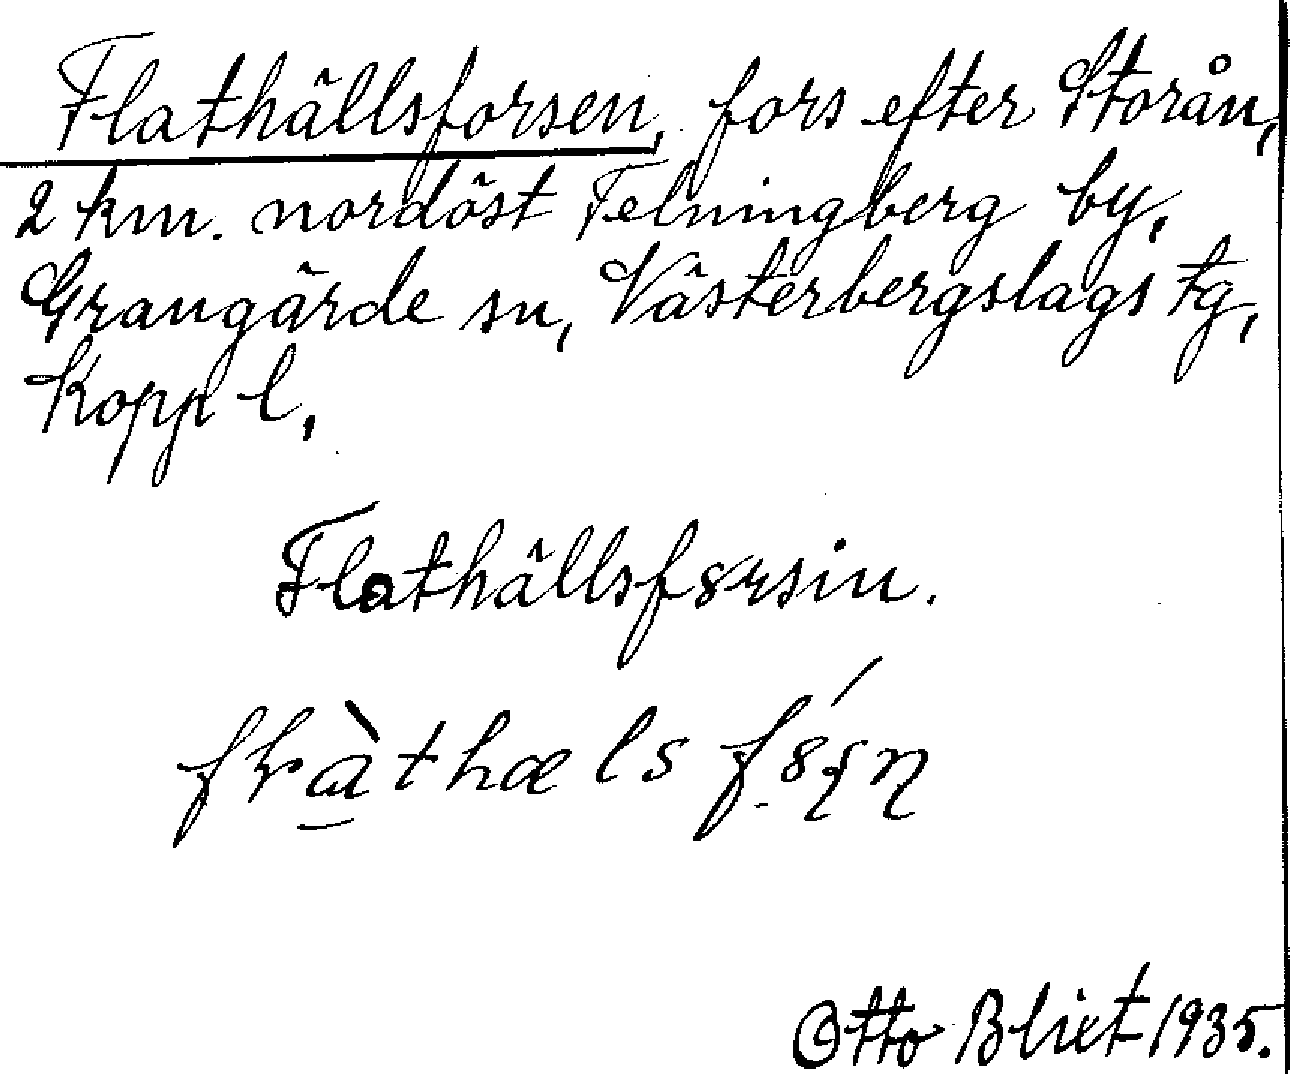 Flathällsforsen, fors efter Storån,
2 km. nordöst Felningberg by,
Grangärde sn, Västerbergslags tg,
Kopp l,
Flathällsforsin.
Otto Blixt 1935.